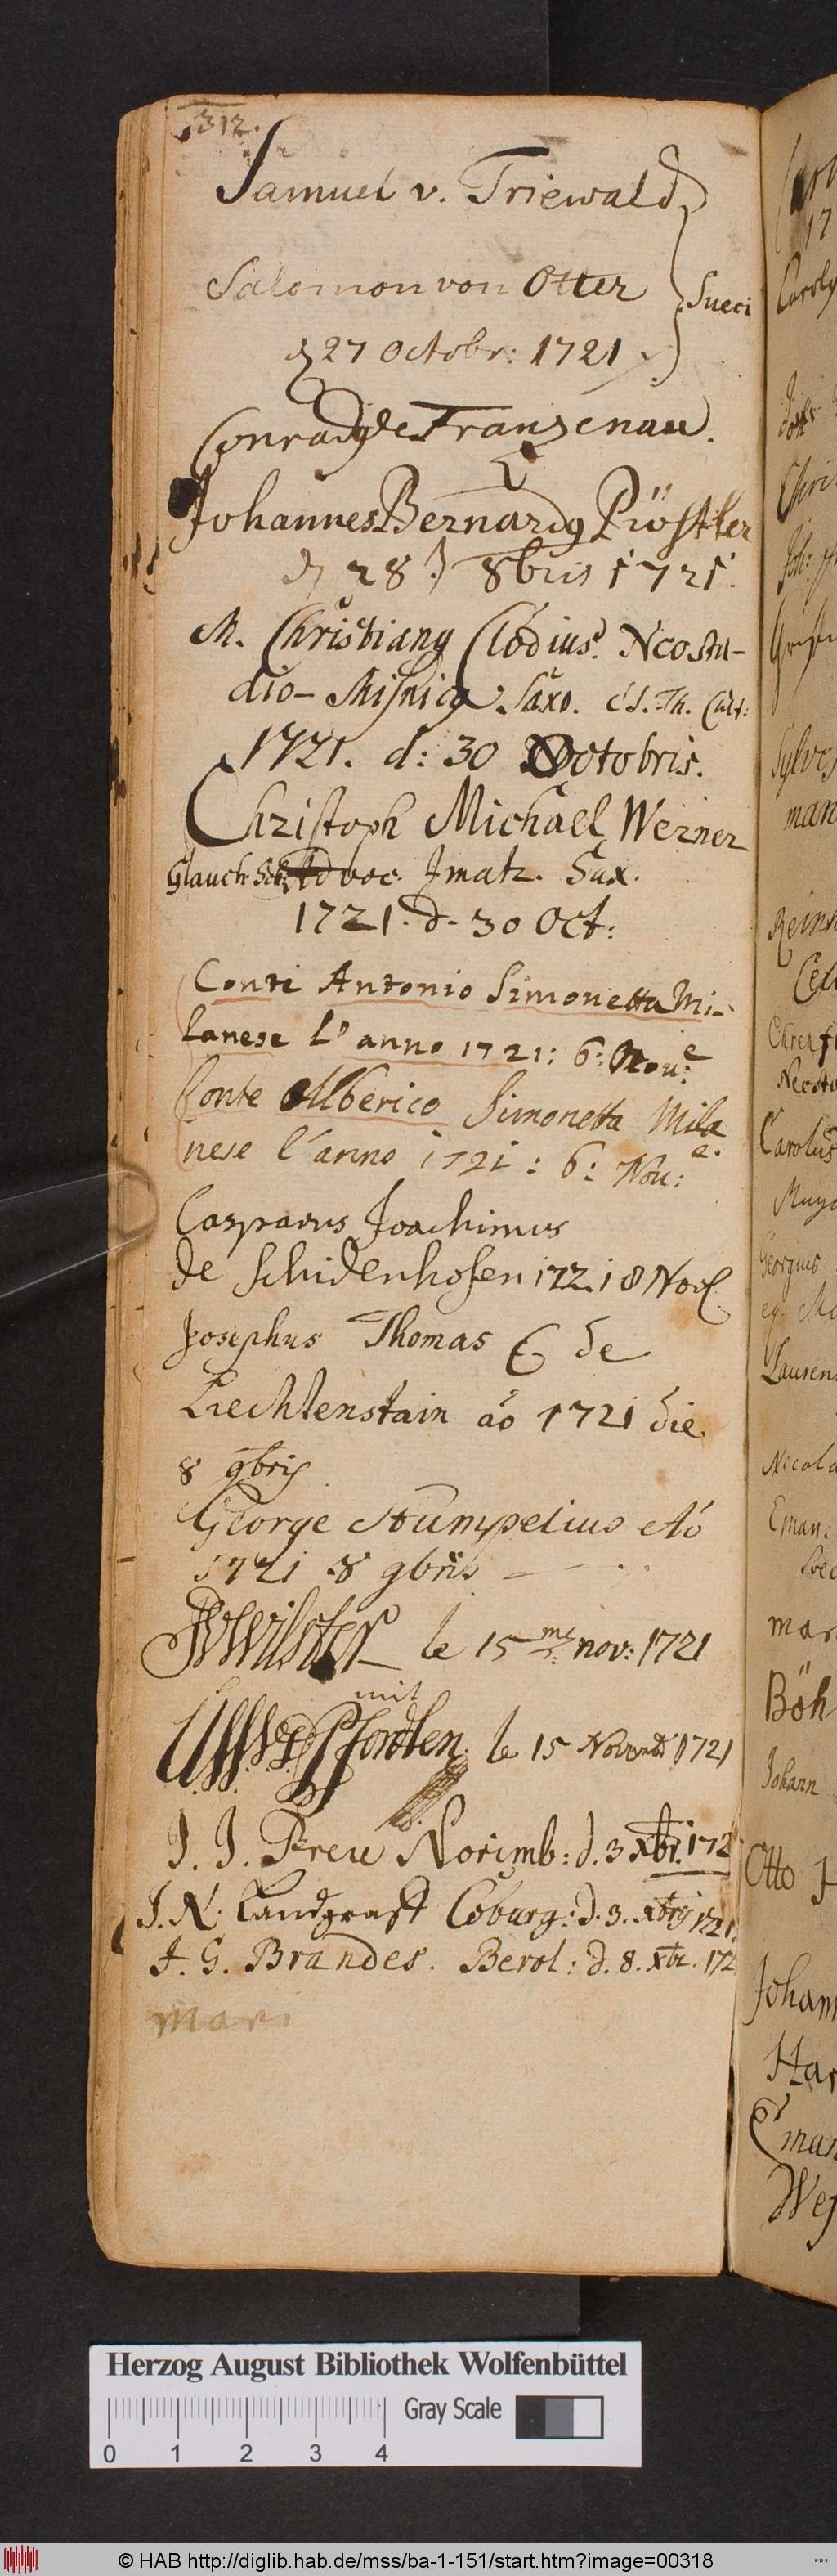 312.
Samuel v. Triewald
Salomon von Otter
Sueci
d 27 Octobr: 1721
Conrad de Franzenau.
Johannes Bernardg Püstler
d 28 8bris 1721.
M. Christiang Clodius. Neosta-
dio-Misnicg. Saxo. & S. Th. Cult:
1721. d: 30 Octobris.
Christoph Michael Werner
Glauch: Sch. Advoc. Jmatr. Sax.
1721. d. 30 Oct:
Conte Antonio Simonetta Mi-
lanese l'anno 1721: 6: Nou:e
Conte Alberico Simonetta Mila
nese l'anno 1721: 6: Nou:e.
Casparus Joachimus
de Schidenhofen 1721 8 Nov
Josephus Thomas C de
Liechtenstain aõ 1721 die
8 9bris
George Stumpelius Aõ
1721 8 9bris
Wilster le 15 me nov: 1721
mit
Pfordten. le 15 Novembr 1721
J. J. Preu Norimb: d. 3 Xbr. 172
J. N. Landgraff Coburg: d. 3. xbrg 1721.
J. G. Brandes. Berol: d. 8. xbr. 172
mar
Carolg
Chri
Joh:
Sylves
man
Reinh
Neosta
Carolus
Georgius
Lauren
Nicola
Eman.
mar
Böh
Johann
Otto
Johann
Har
Eman
Herzog August Bibliothek Wolfenbüttel
Gray Scale
0 1 2 3 4
© HAB http://diglib.hab.de/mss/ba-1-151/start.htm?image=00318